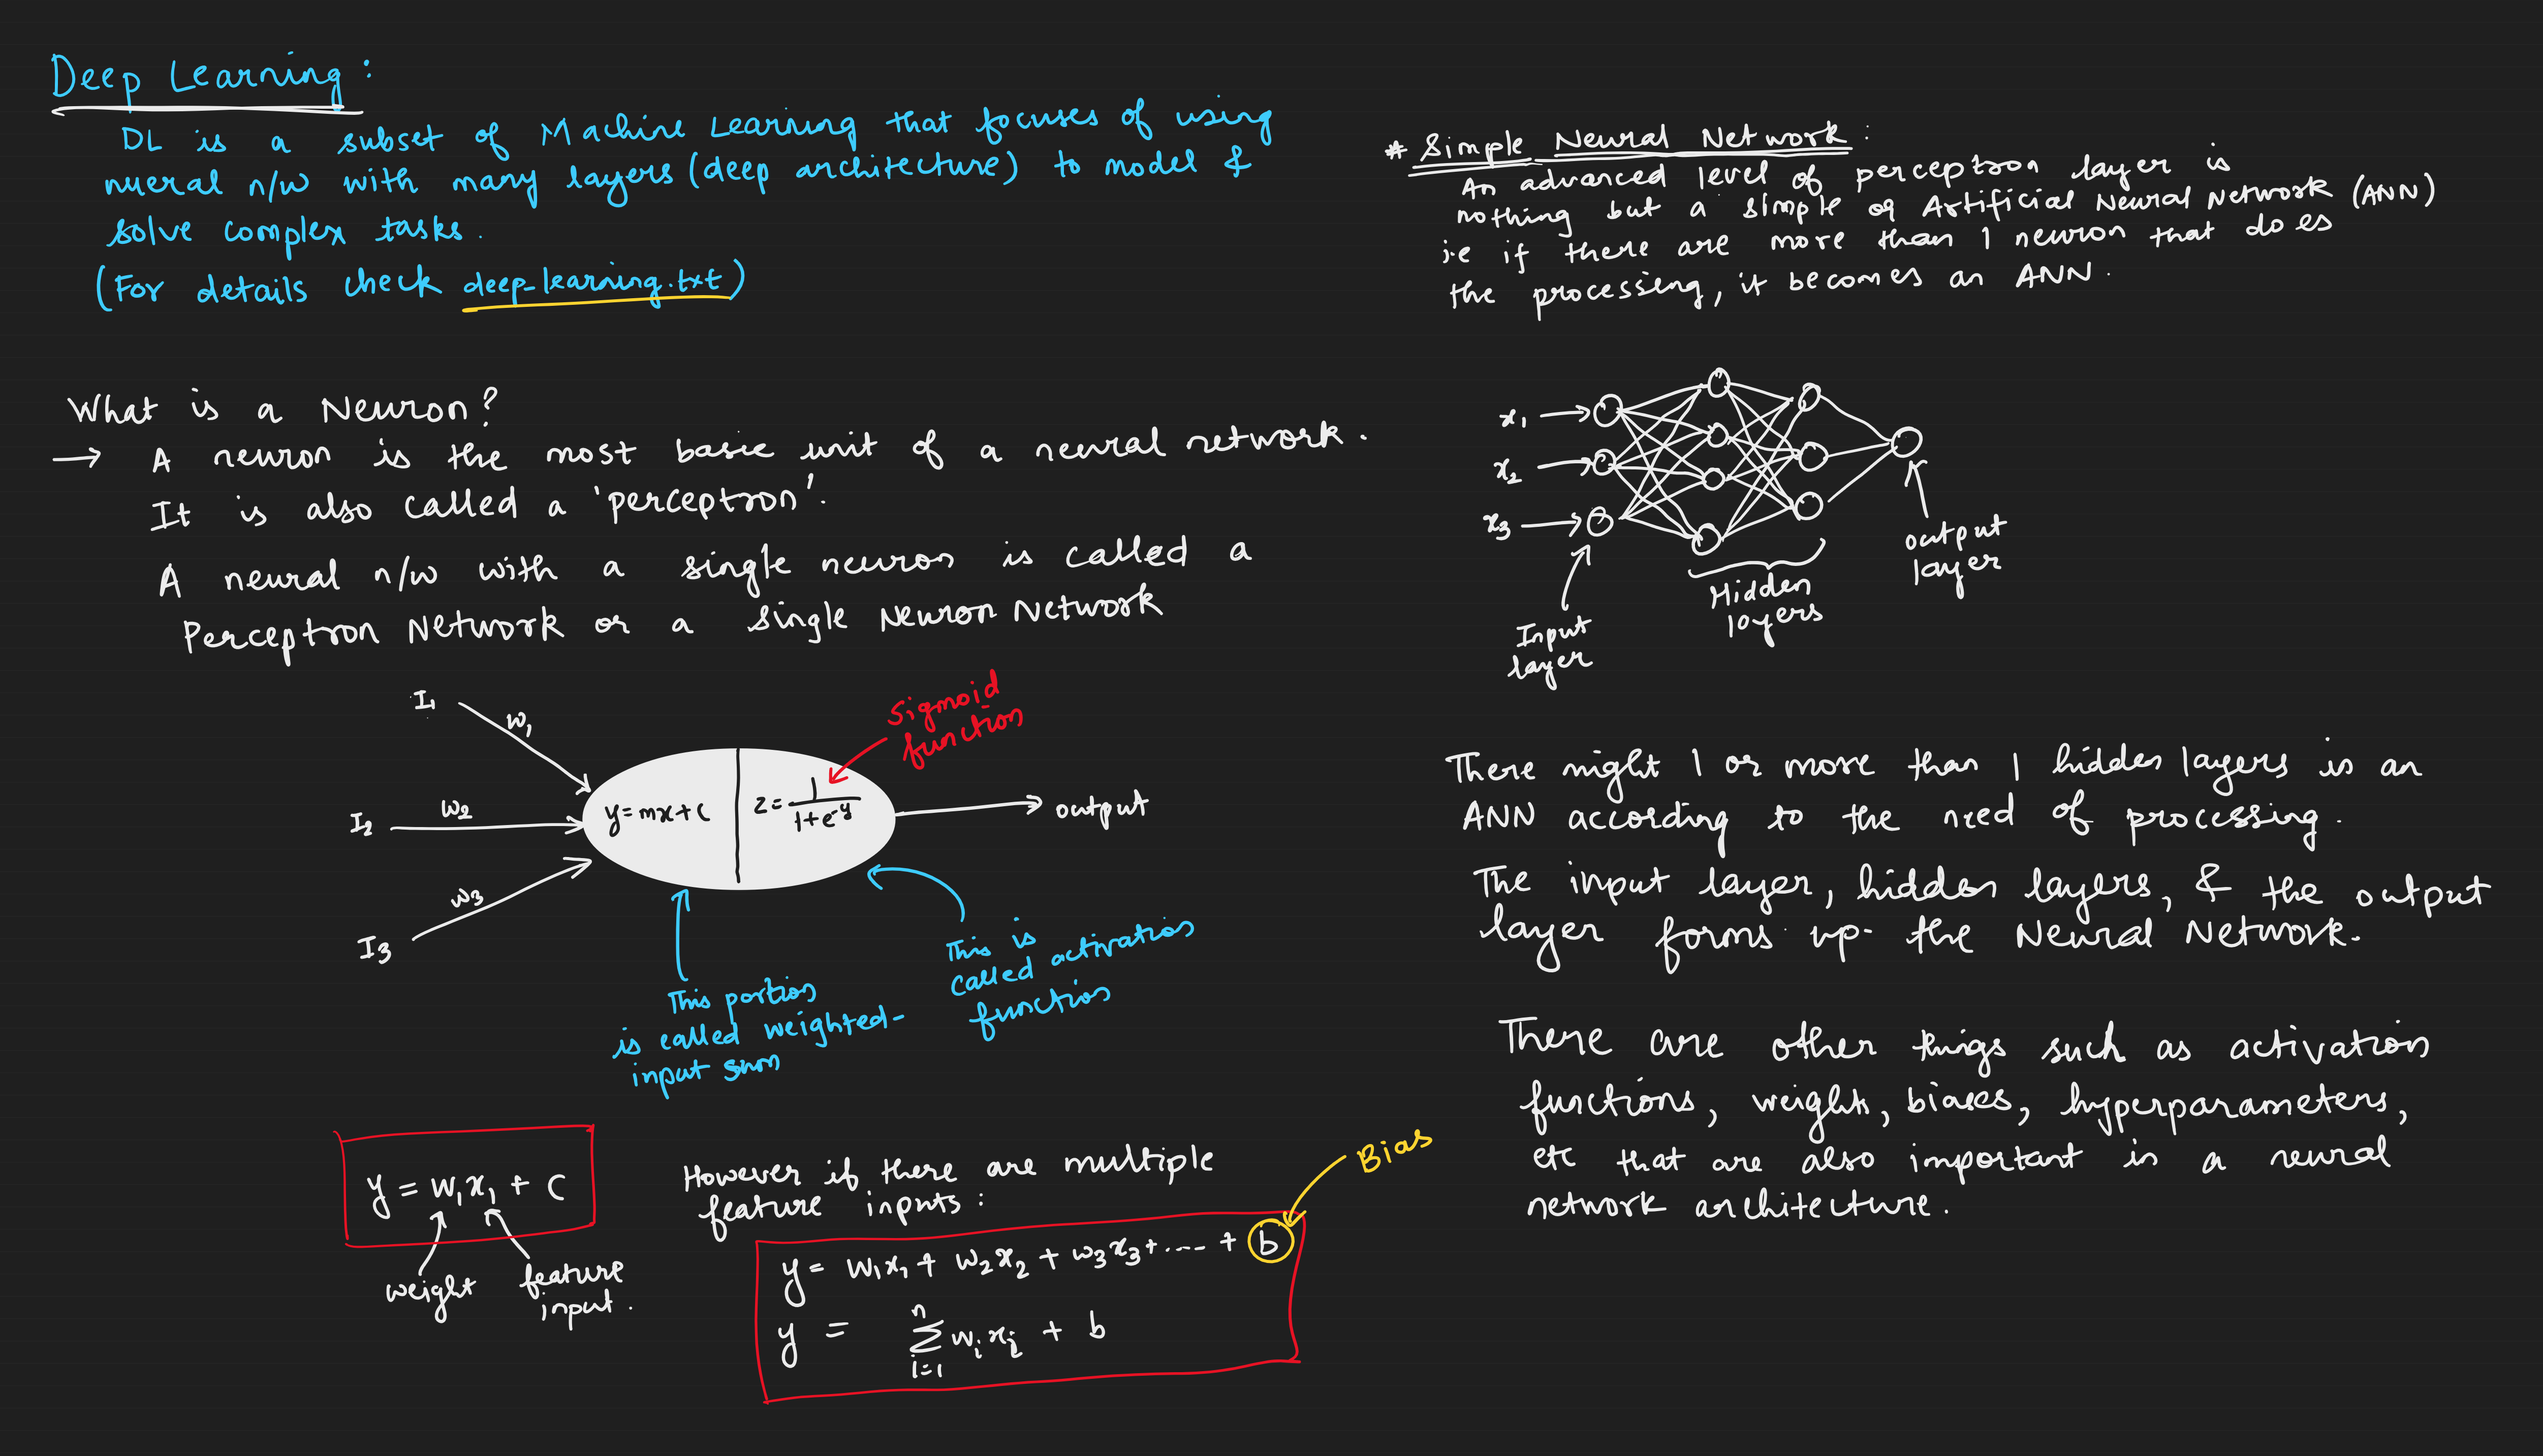 Deep Learning :
DL is a subset of Machine Learning that focuses of using
nueral n/w with many layers (deep architecture) to model &
solve complex tasks.
(For details check deep-learning.txt)
What is a Neuron?
→ A neuron is the most basic unit of a neural network.
It is also called a 'perceptron'.
A neural n/w with a single neuron is called a
Perceptron Network or a Single Neuron Network
I₁
w₁
I₂
w₂
I₃
w₃
y = mx + c
z = 1 / (1 + e^-y)
Sigmoid
function
output
This portion
is called weighted-
input sum
This is
called activation
function
y = w₁x₁ + c
weight
feature
input.
However if there are multiple
feature inputs :
Bias
y = w₁x₁ + w₂x₂ + w₃x₃ + .... + b
y = n Σ i=1 wᵢxᵢ + b
* Simple Neural Network :
An advanced level of perceptron layer is
nothing but a simple or Artificial Neural Network (ANN)
i.e if there are more than 1 neuron that does
the processing, it becomes an ANN.
x₁
x₂
x₃
Input
layer
Hidden
layers
output
layer
There might 1 or more than 1 hidden layers in an
ANN according to the need of processing.
The input layer, hidden layers, & the output
layer forms up the Neural Network.
There are other things such as activation
functions, weights, biases, hyperparameters,
etc that are also important in a neural
network architecture.